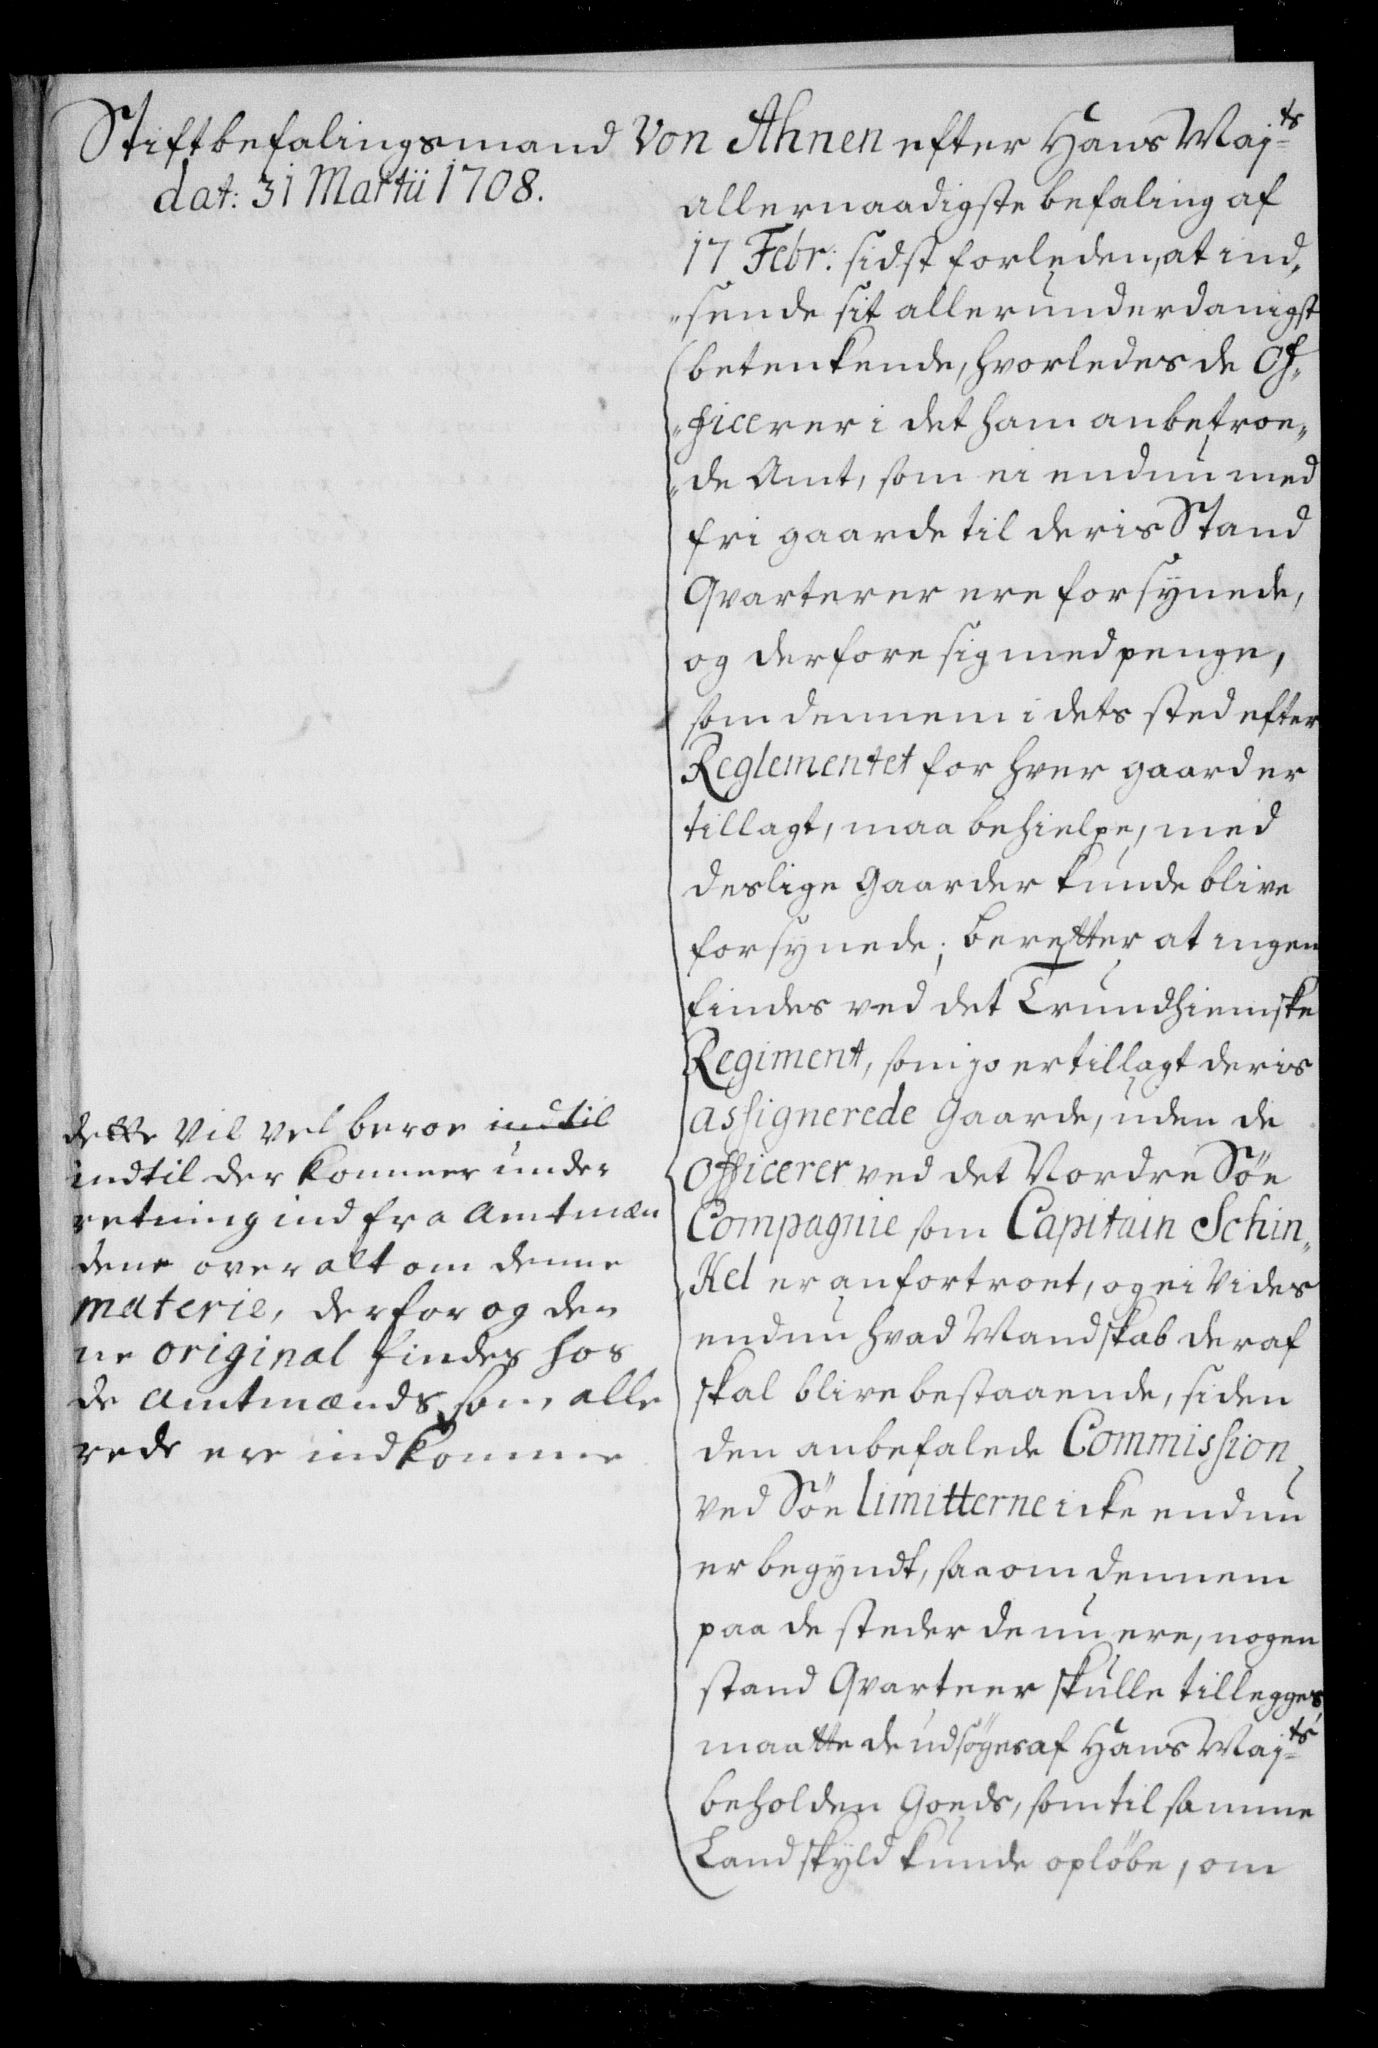 Stiftbefalingsmand Von Ahnen efter Hans Maj:ts
dat: 31 Martii 1708.
allernaadigste befaling af
17 Febr: sidst forleden, at ind„
„sende sit allerunderdanigst
betenkende, hvorledes de Of„
„ficerer i det ham anbetroe„
„de Amt, som ei endnu med
fri gaarde til deris Stand
Qvarterer ere forsynede,
og derfore sig med penge,
som dennem i dets sted efter
Reglementet for hver gaard er
tillagt, maa behielpe, med
deslige Gaarder kunde blive
forsynede; beretter at ingen
findes ved det Trundhiemske
Regiment, som jo er tillagt deris
assignerede Gaarde, uden de
Officerer ved det Nordre Söe
Compagnie som Capitain Schin„
„Kel er anfortroet, og ei Vides
endnu hvad Mandskab deraf
skal blive bestaaende, siden
den anbefalede Commission
ved Söe limitterne icke endnu
er begyndt, saa om dennem
paa de steder de nu ere, nogen
stand Qvarteer skulle tillegges,
maatte de udsöges af Hans Maj:ts
beholden Goeds, som til samme
Landskyld kunde oplöbe, om
dette Vil vel beroe indtil
indtil der kommer under
retning ind fra Amtmæn
dene over alt om denne
materie, derfor og den
ne original findes hos
de Amtmænds som alle
rede ere indkomme